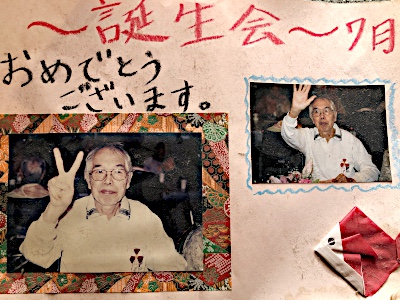 ～誕生会～7月
おめでとう
ございます。